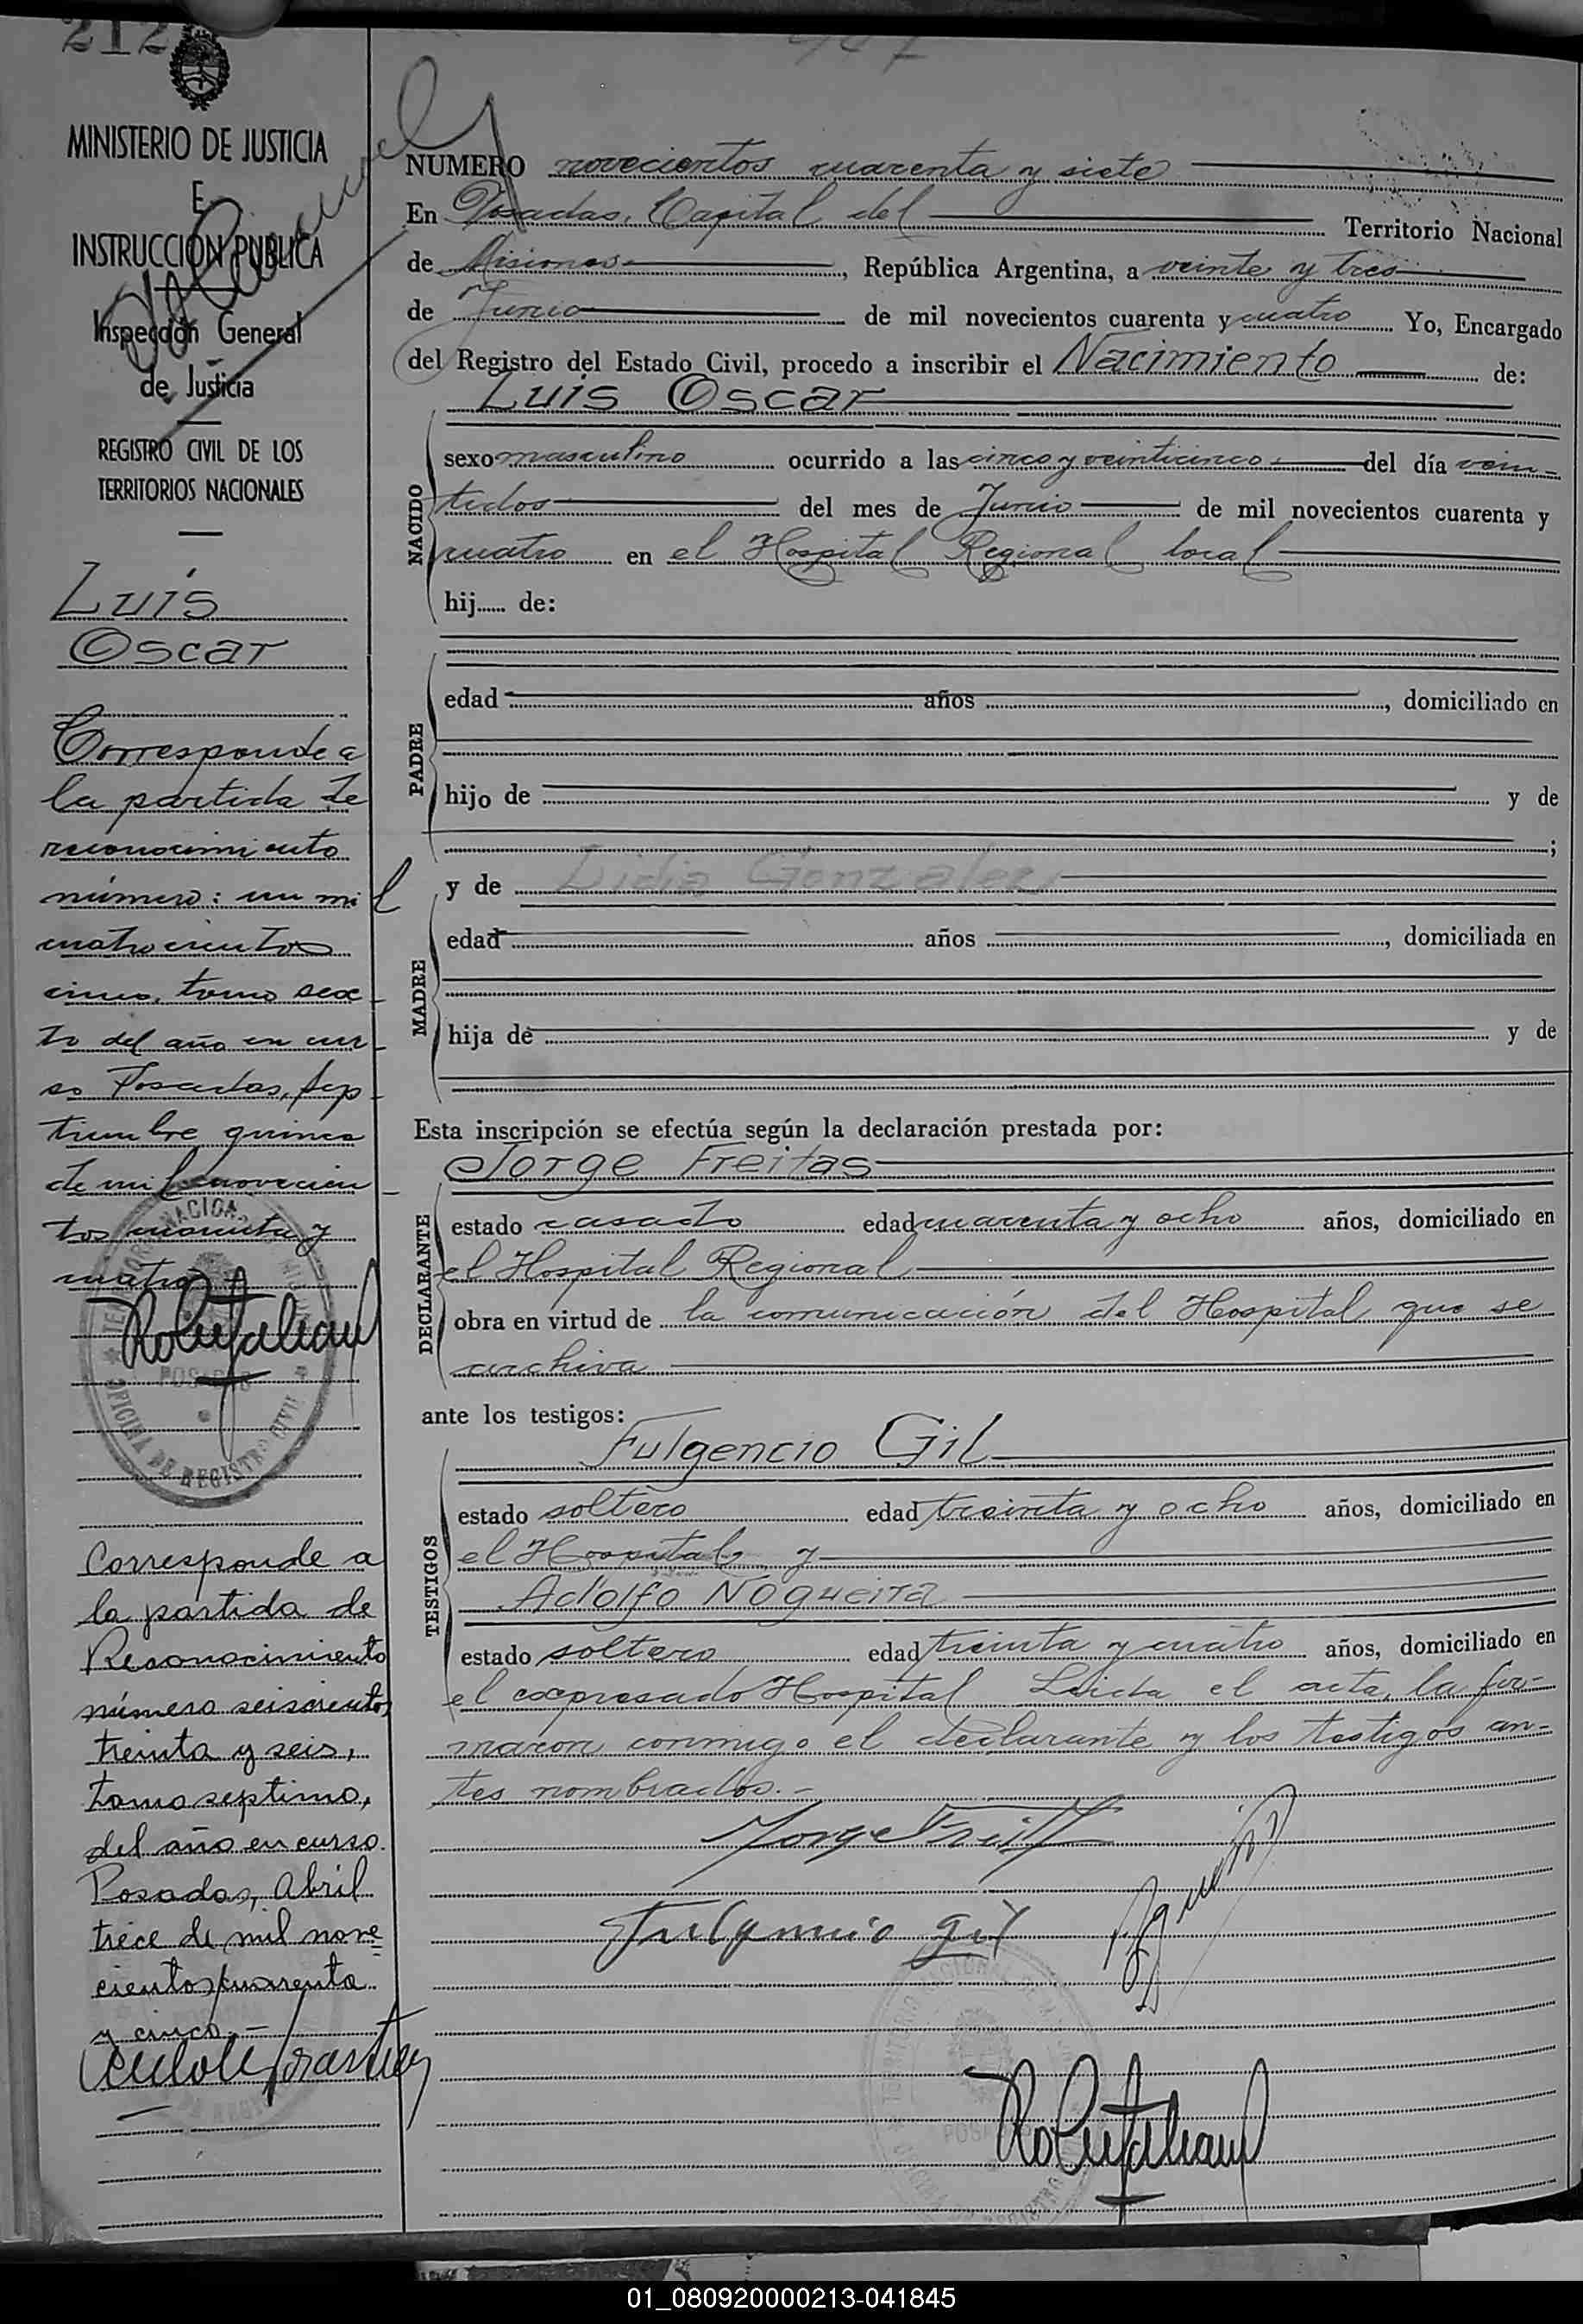 212
947
MINISTERIO DE JUSTICIA
E
INSTRUCCIÓN PUBLICA
Inspección General
de Justicia
REGISTRO CIVIL DE LOS
TERRITORIOS NACIONALES
Luis
Oscar
Corresponde a
la partida de
reconocimiento
número: un mil
cuatrocientos
cinco, tomo sex-
to del año en cur-
so Posadas, Sep-
tiembre quince
de mil novecien-
tos cuarenta y
cuatro
POSADAS
OFICINA DE REGISTRO CIVIL
Corresponde a
la partida de
Reconocimiento
número seiscientos
treinta y seis,
tomo septimo,
del año en curso.
Posadas, Abril
trece de mil nove=
cientos cuarenta
y cinco.-
NUMERO novecientos cuarenta y siete
En Posadas, Capital del Territorio Nacional
de Misiones, República Argentina, a veinte y tres
de Junio de mil novecientos cuarenta y cuatro Yo, Encargado
del Registro del Estado Civil, procedo a inscribir el Nacimiento de:
Luis Oscar
NACIDO
sexo masculino ocurrido a las cinco y veinticinco del día vein-
tidos del mes de Junio de mil novecientos cuarenta y
cuatro en el Hospital Regional local
hij...... de:
PADRE
edad años , domiciliado en
hijo de y de
;
y de Lidia Gonzalez
MADRE
edad años , domiciliada en
hija de y de
Esta inscripción se efectúa según la declaración prestada por:
Jorge Freitas
DECLARANTE
estado casado edad cuarenta y ocho años, domiciliado en
el Hospital Regional
obra en virtud de la comunicación del Hospital que se
archiva
ante los testigos:
Fulgencio Gil
TESTIGOS
estado soltero edad treinta y ocho años, domiciliado en
el Hospital y
Adolfo Nogueira
estado soltero edad treinta y cuatro años, domiciliado en
el expresado Hospital Leida el acta, la fir-
maron conmigo el declarante y los testigos an-
tes nombrados.-
Jorge Freitas
Fulgencio Gil
01_080920000213-041845